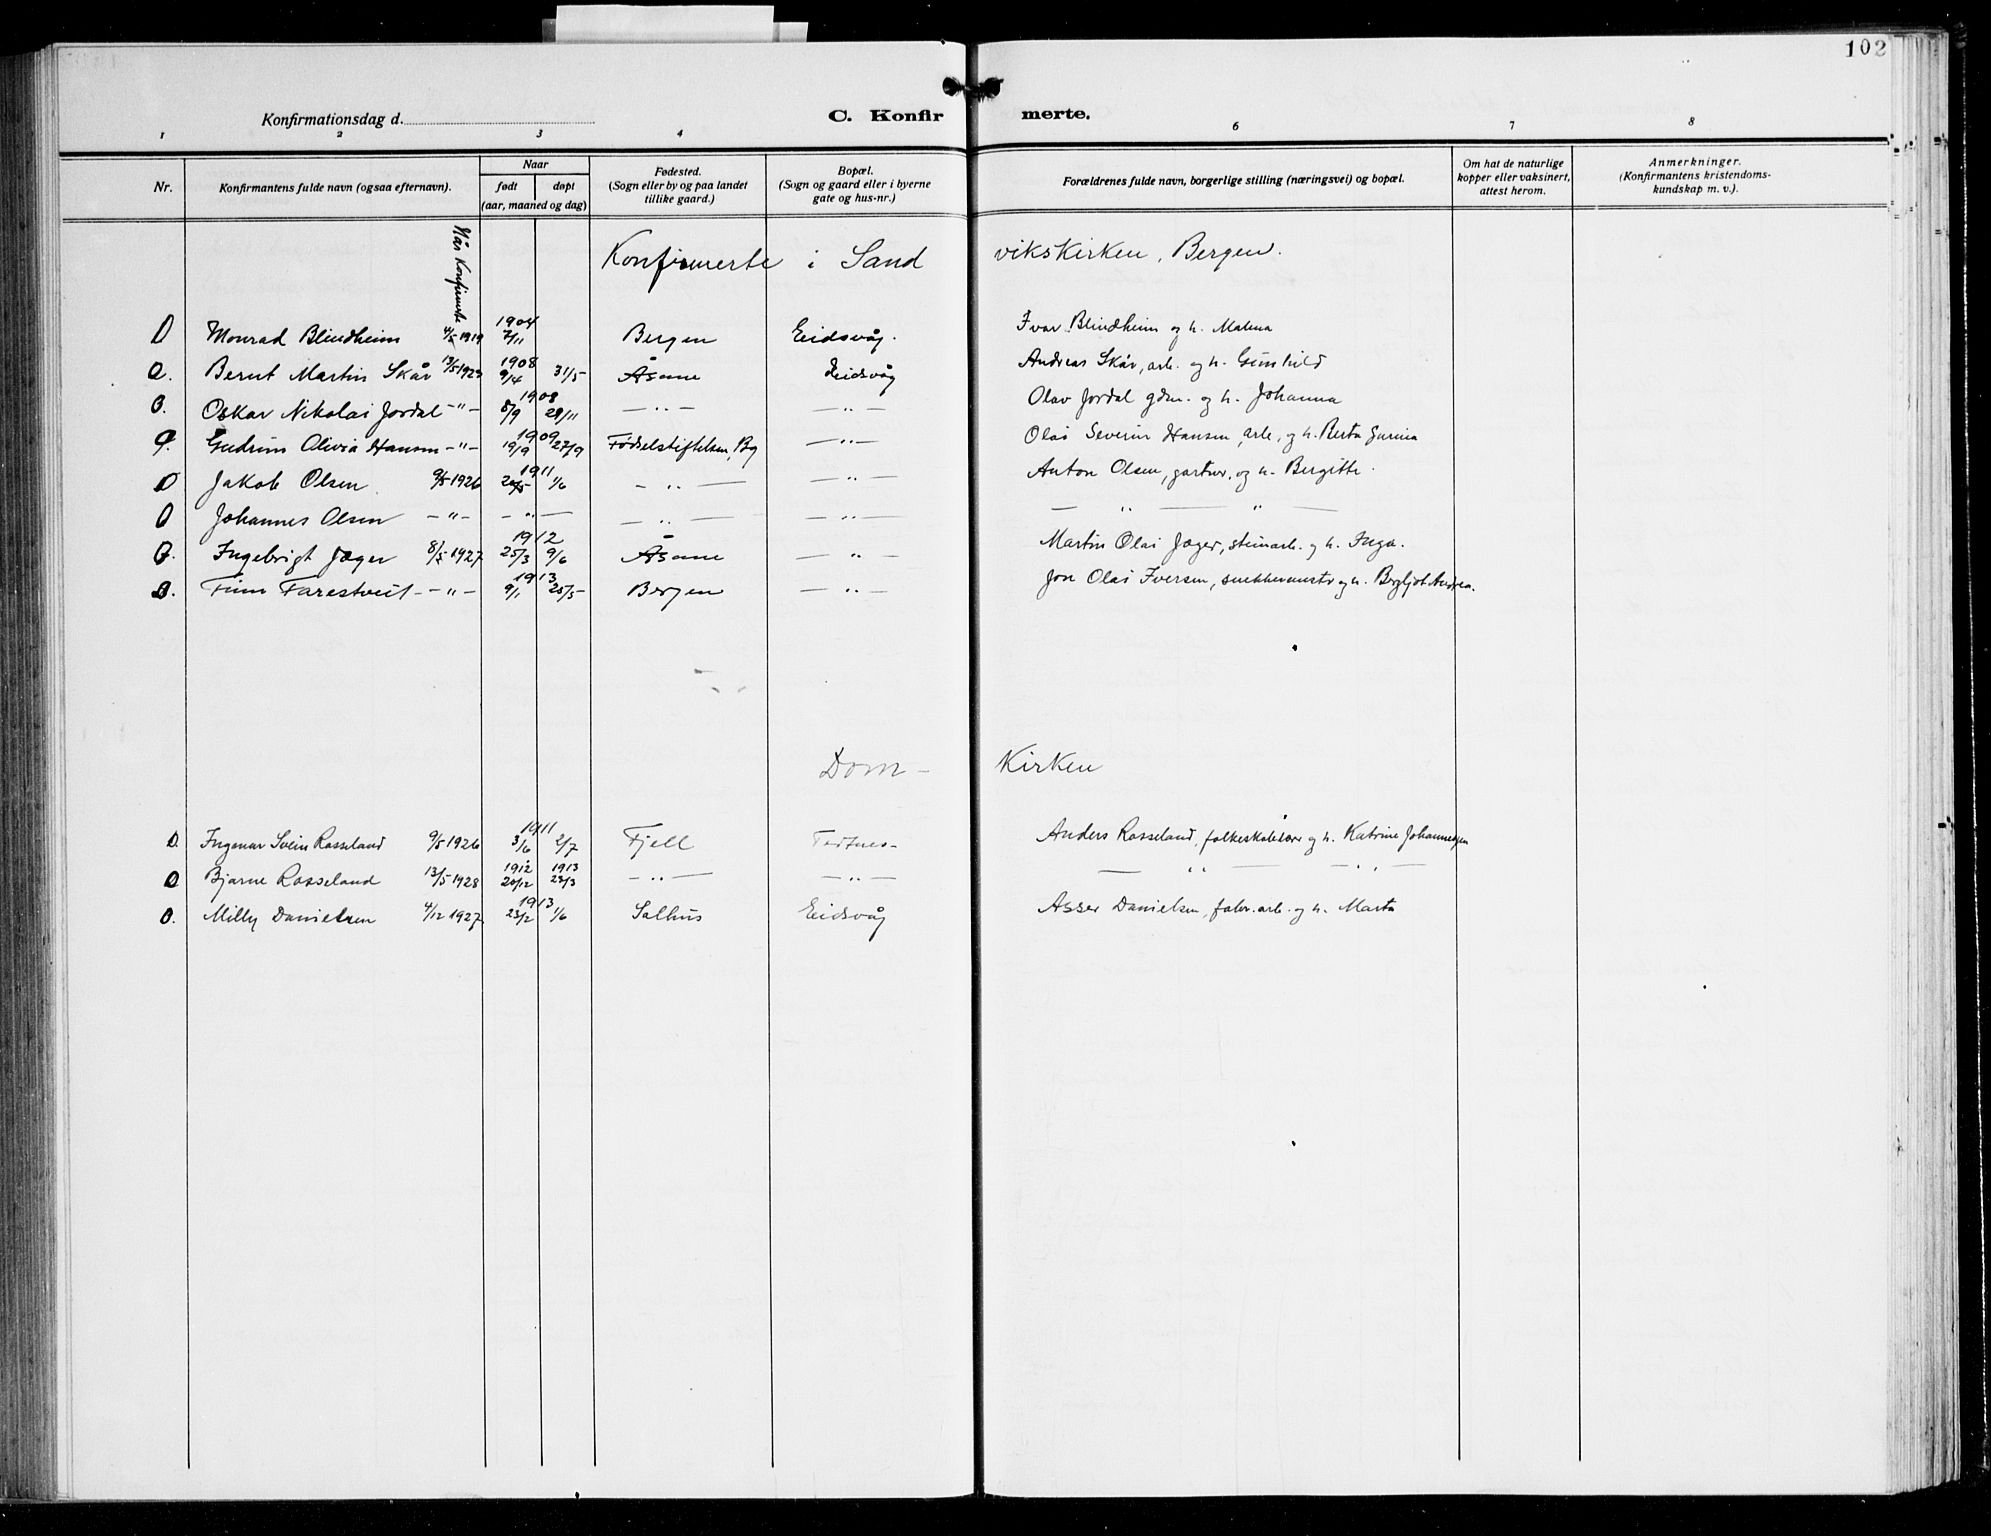 102
Konfirmationsdag d. C. Konfir merte.
1 2 3 4 6 7 8
Nr. Konfirmantens fulde navn (ogsaa efternavn). Naar født døpt (aar, maaned og dag) Fødested. (Sogn eller by og paa landet tillike gaard.) Bopæl. (Sogn og gaard eller i byerne gate og hus-nr.) Forældrenes fulde navn, borgerlige stilling (næringsvei) og bopæl. Om hat de naturlige kopper eller vaksinert, attest herom. Anmerkninger. (Konfirmantens kristendoms- kundskap m. v.).
Når Konfirmerte
Konfirmerte i Sand vikskirken, Bergen.
Monrad Blindheim 4/5 1919 1904 7/11 Bergen Eidsvåg. Ivar Blindheim og h. Malena
Bernt Martin Skår 13/5 1923 1908 9/4 31/5 Åsane Eidsvåg Andreas Skår, arb. og h. Gunhild
Oskar Nikolai Jordal -"- 1908 8/9 29/11 -"- -"- Olav Jordal gdm. og h. Johanna
Gudrun Olivia Hansen -"- 1909 19/9 27/9 Fødselstiftelsen, Bg -"- Olai Severin Hansen, arb, og h. Berta Gurina
Jakob Olsen 9/5 1926 1911 20/5 1/6 -"- -"- Anton Olsen, gartner, og h. Bergitte.
Johannes Olsen -"- -"- -"- -"- -"- -"-
Ingebrigt Jæger 8/5 1927 1912 25/3 9/6 Åsane -"- Martin Olai Jæger, steinarb. og h. Inga.
Finn Farestveit -"- 1913 9/1 25/5 Bergen -"- Jon Olai Iversen, snekkermester og h. Bergljot Andrea.
Dom- Kirken
Ingmar Svein Rosseland 9/5 1926 1911 3/6 2/7 Fjell Tertnes- Anders Rosseland, folkeskolelærer og h. Katrine Johannesen
Bjarne Rosseland 13/5 1928 1912 20/12 1913 23/3 -"- -"- -"- -"-
Milly Danielsen 4/12 1927 1913 23/2 1/6 Salhus Eidsvåg Asser Danielsen, fabr. arb. og h. Marta